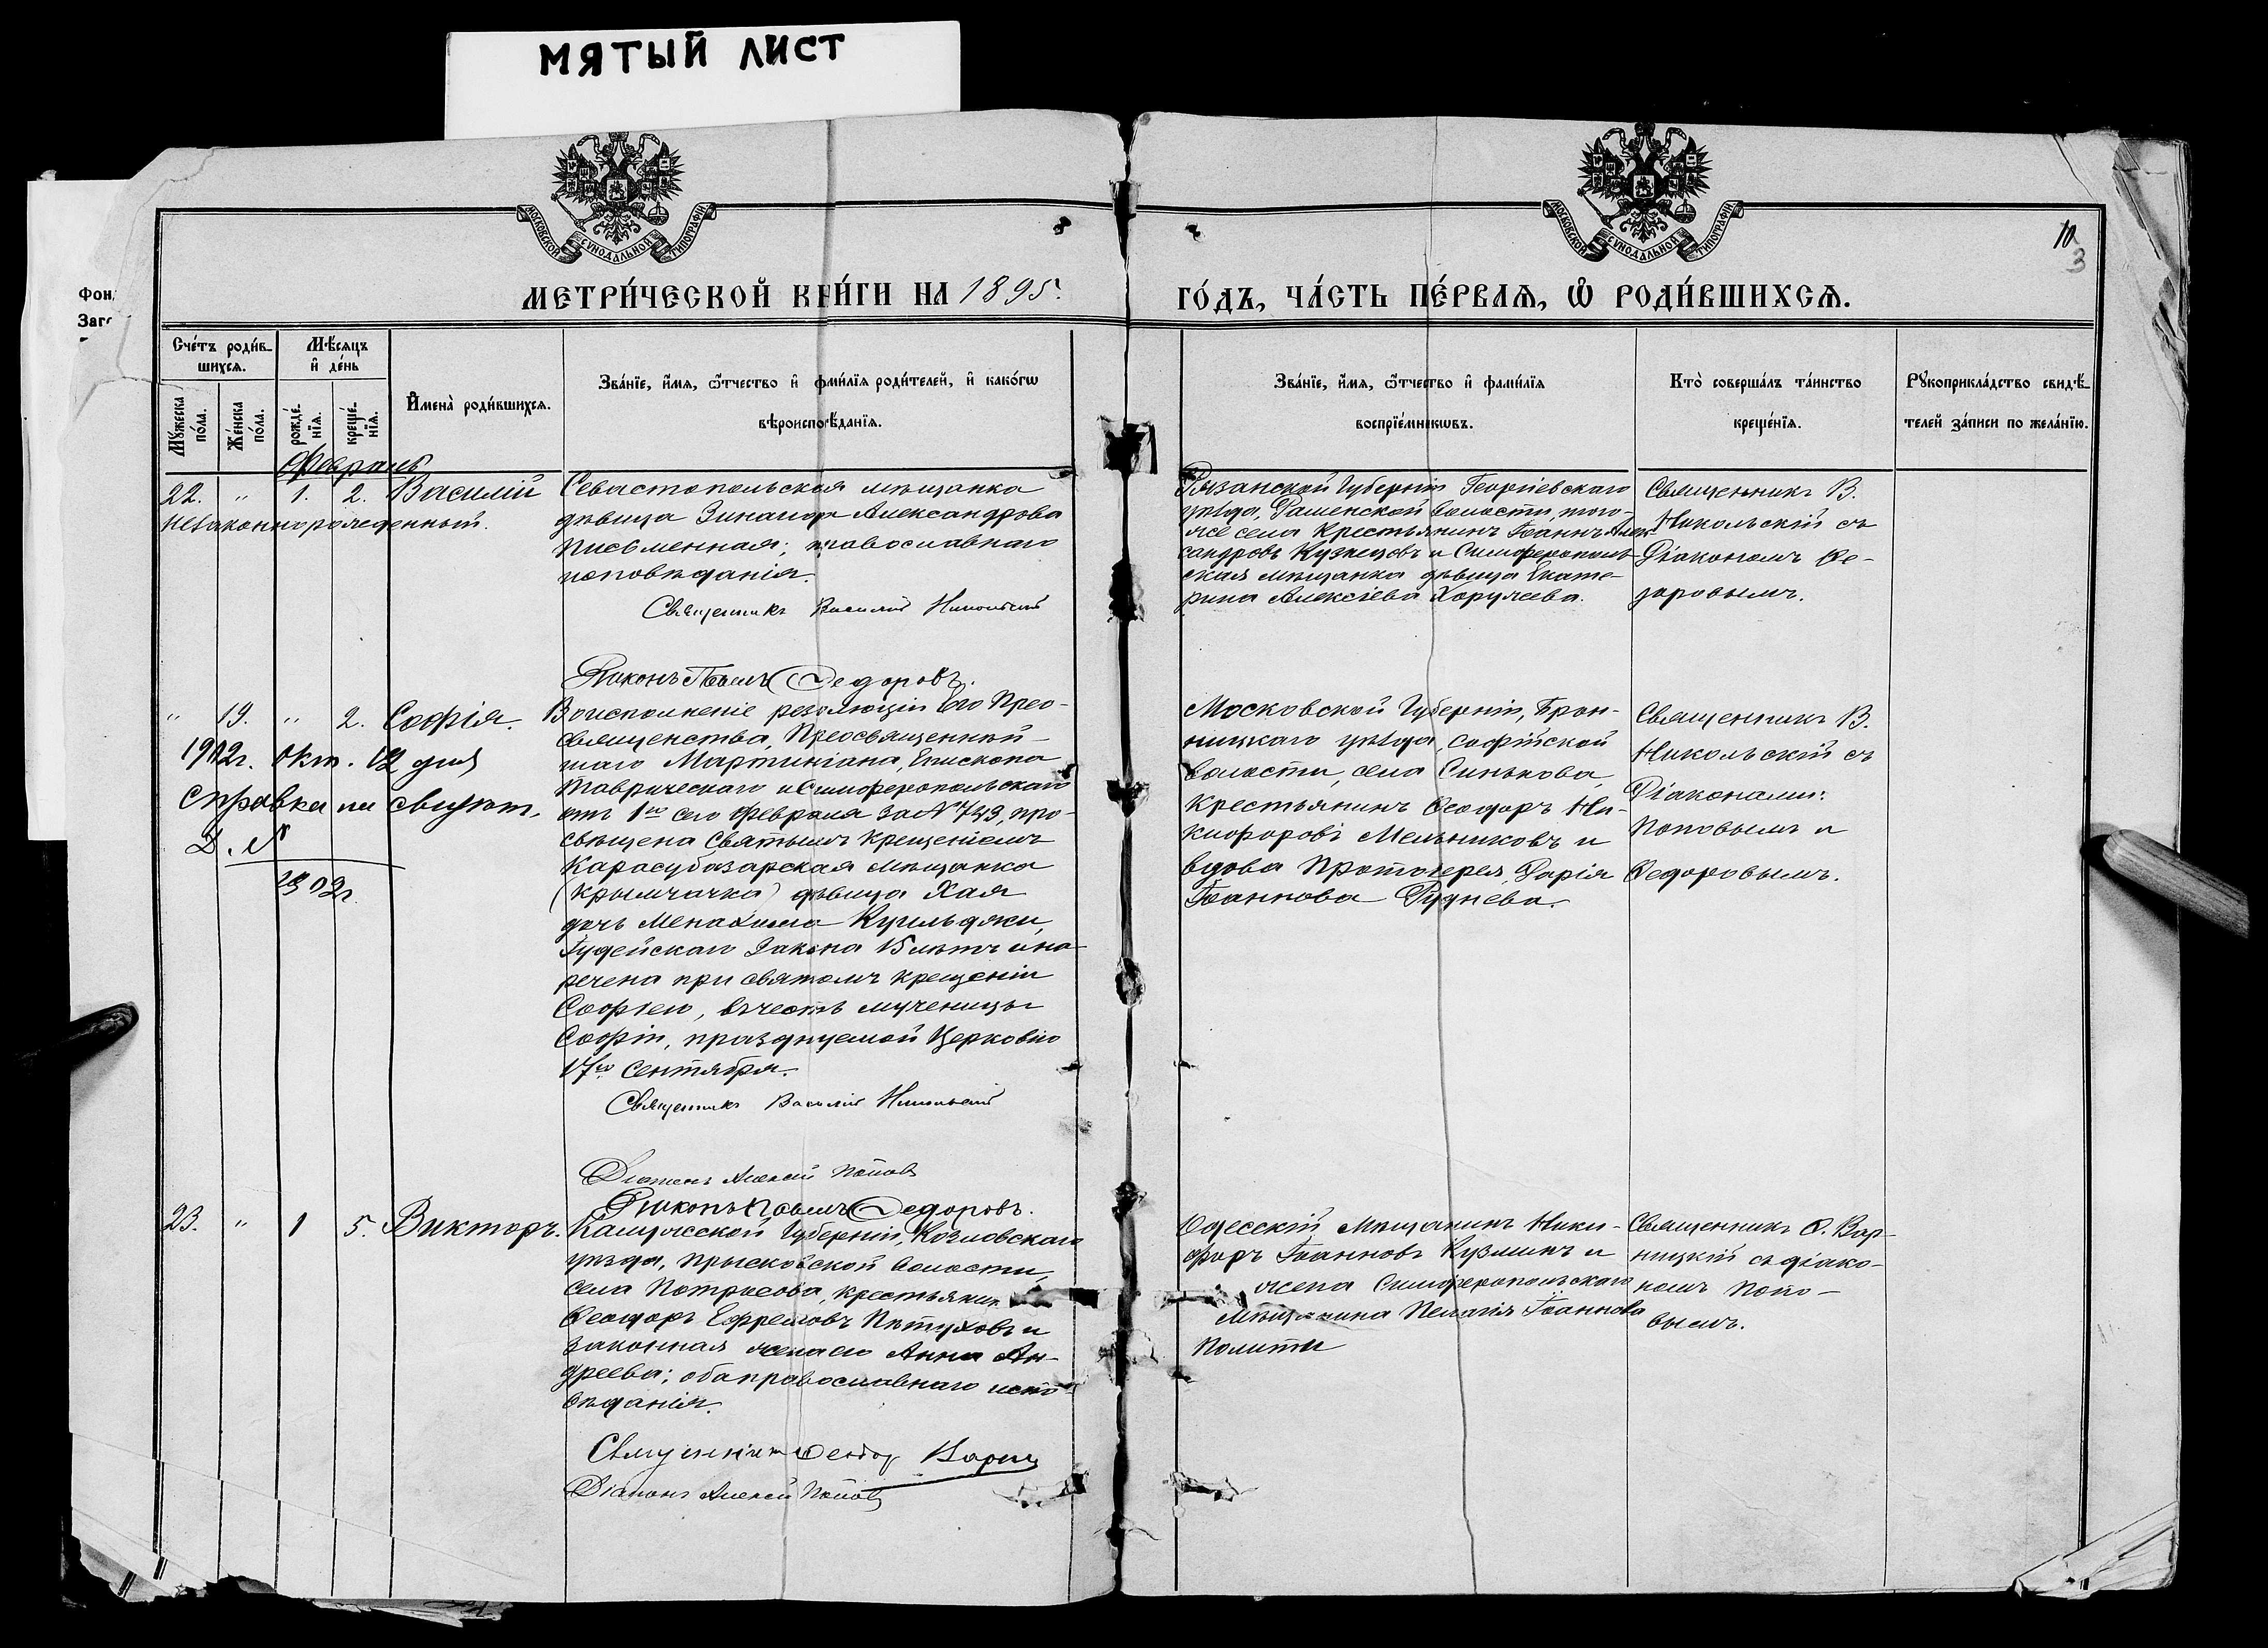 МЯТЫЙ ЛИСТ
Фон
Заг
МОСКОВСКОЙ СѴНОДАЛЬНОЙ ТИПОГРАФІИ
МОСКОВСКОЙ СѴНОДАЛЬНОЙ ТИПОГРАФІИ
10
3
МЕТРИ́ЧЕСКОЙ КНИ́ГИ НА 1895.
ГО́ДЪ, ЧА́СТЬ ПЕ́РВАѦ, Ѡ҆ РОДИ́ВШИХСѦ.
Сче́тъ роди́в-
шихсѧ.
Мѣ́сѧцъ
и҆ де́нь
Мꙋ́жеска
по́ла.
Же́нска
по́ла.
рожде́-
нїѧ.
креще́-
нїѧ.
И҆мена̀ роди́вшихсѧ.
Зва́нїе, и҆́мѧ, ѻ҆́тчество и҆ фами́лїѧ роди́телей, и҆ како́гѡ
вѣроисповѣ́данїѧ.
Зва́нїе, и҆́мѧ, ѻ҆́тчество и҆ фами́лїѧ
воспрїе́мникѡвъ.
Кто̀ соверша́лъ та́инство
креще́нїѧ.
Рꙋкоприкла́дство свидѣ́-
телей за́писи по жела́нїю.
Февраль
22. " 1. 2. Василій
незаконнорожденный.
Севастопольская мѣщанка
дѣвица Зинаида Александрова
Письменная; православнаго
исповѣданія.
Священникъ Василій Никольскій
Діаконъ Павелъ Федоровъ.
Рязанской Губерніи Георгіевскаго
уѣзда, Раменской Волости, того-
же села Крестьянинъ Іоаннъ Алек-
сандровъ Кузнецовъ и Симферополь-
ская мѣщанка дѣвица Екате-
рина Алексіева Хоружева.
Священникъ В.
Никольскій съ
Діакономъ Ѳе-
доровымъ.
" 19. " 2. Софія.
1902г. Окт. 12 дня
справка на свидѣт.
Д. №
1902г.
Во исполненіе резолюціи Его Прео-
священства, Преосвященнѣй-
шаго Мартиніана, Епископа
Таврическаго и Симферопольскаго
отъ 1го сего Февраля за № 749, про-
свѣщена Святымъ Крещеніемъ
Карасубазарская мѣщанка
(крымчачка) дѣвица Хая
дочь Менахима Куильджи,
Іудейскаго Закона 15 лѣтъ и на-
речена при святомъ крещеніи
Софіею, въ честь мученицы
Софіи, празднуемой Церковію
17го Сентября.
Священникъ Василій Никольскій
Діаконъ Алексій Поповъ
Діаконъ Павелъ Федоровъ.
Московской Губерніи, Брон-
ницкаго уѣзда, Софійской
волости, села Синькова,
Крестьянинъ Ѳеодоръ Ни-
кифоровъ Мельниковъ и
вдова Протоіерея Дарія
Іоаннова Руднева.
Священникъ В.
Никольскій съ
Діаконами:
Поповымъ и
Ѳедоровымъ.
23. " 1 5. Викторъ.
Калужской Губерніи, Козловскаго
уѣзда, Прысковской Волости,
села Потрѣсова, крестьянин
Ѳеодоръ Ефремовъ Пѣтуховъ и
законная жена его Анна Ан-
дреева; оба православнаго испо-
вѣданія.
Священникъ Ѳеодор Варн
Діаконъ Алексій Поповъ
Одесскій Мѣщанинъ Ники-
форъ Іоанновъ Кузминъ и
жена Симферопольскаго
Мѣщанина Пелагія Іоаннова
Полити
Священникъ Ѳ. Вар-
ницкій съ діако-
номъ Попо-
вымъ.